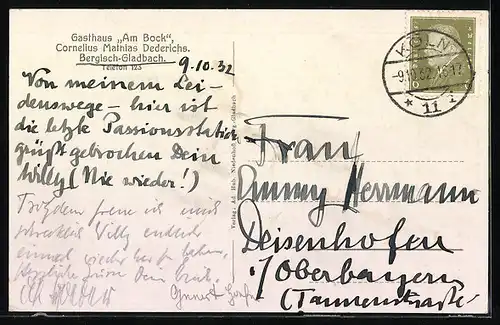 Gasthaus „Am Bock",
Cornelius Mathias Dederichs.
Bergisch-Gladbach.
Telefon 123
9.10.32
Von meinem Lei-
denswege – hier ist
die letzte Passionsstation
grüßt gebrochen Dein
Willy (Nie wieder!)
Trotzdem freue ich mich
schrecklich Willy endlich
einmal wieder hier zu haben.
Herzliche Grüsse Dein
Verlag Ad. Hub.
KÖLN
-9.10.32.
* 11
6
Frau
Herrmann
Deisenhofen
i/Oberbayern
(Tannenstraße